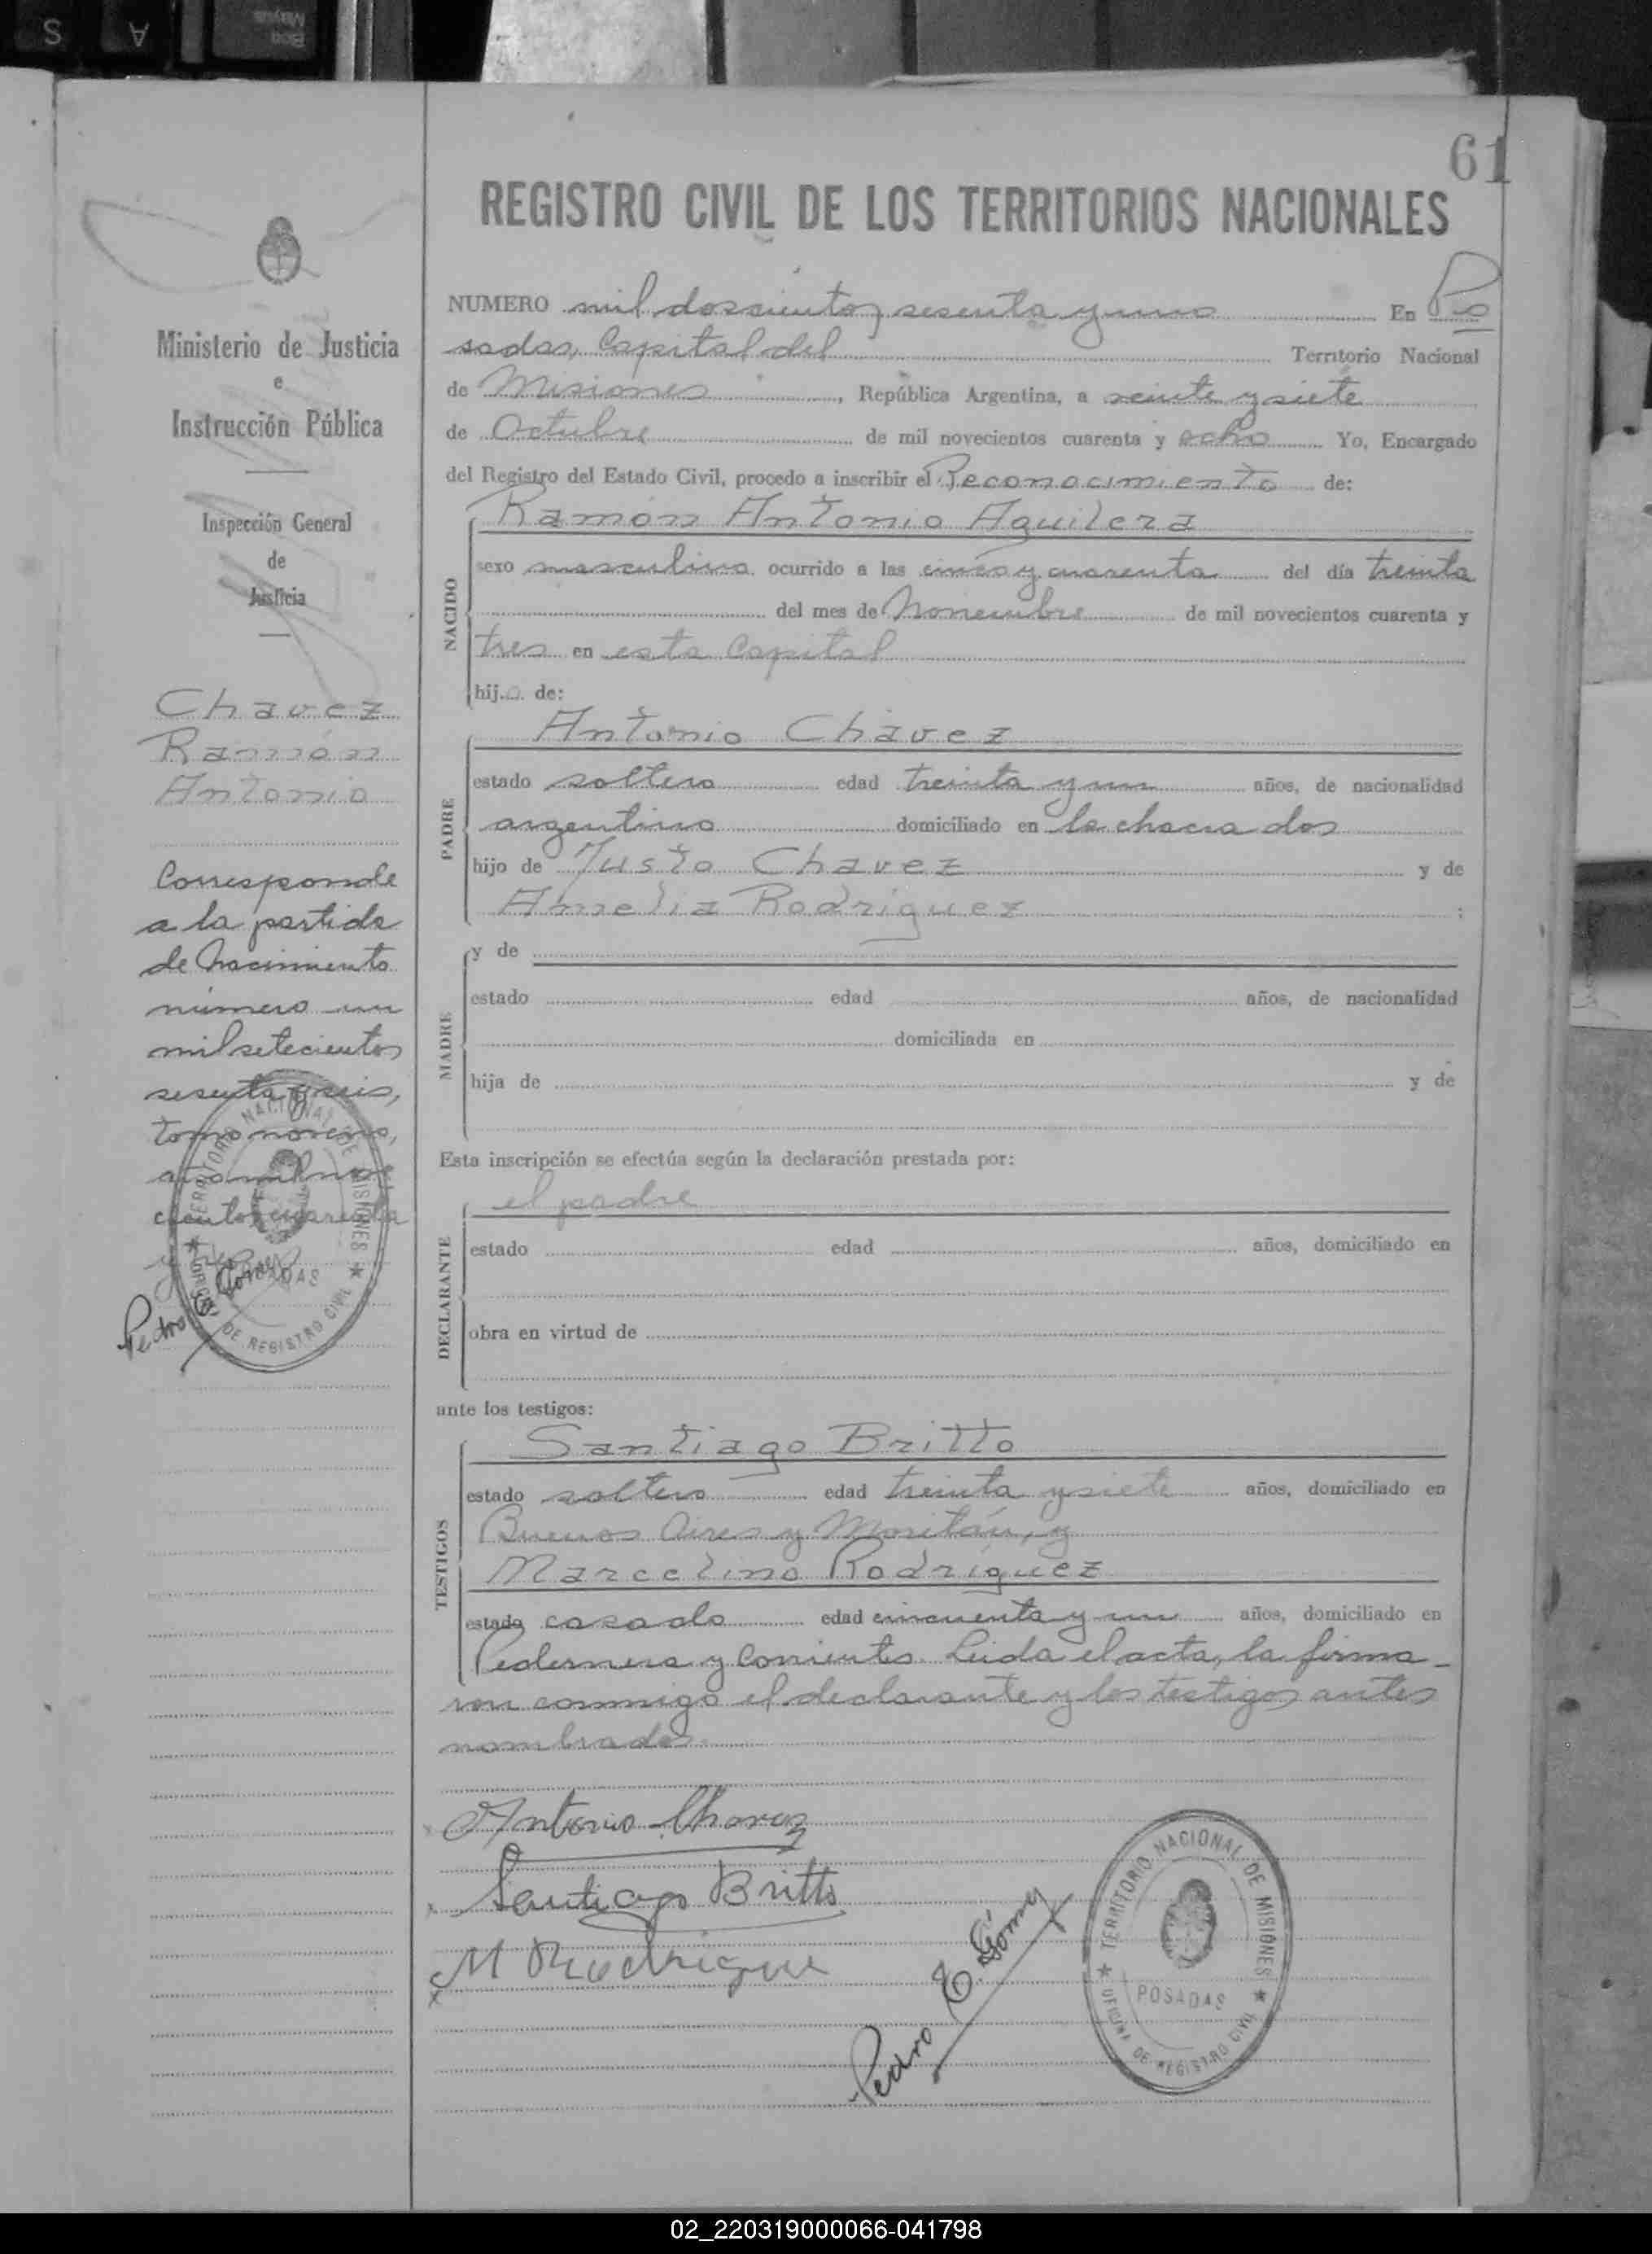 61
REGISTRO CIVIL DE LOS TERRITORIOS NACIONALES
Ministerio de Justicia
e
Instrucción Pública
Inspección General
de
Justicia
Chavez
Ramón
Antonio
Corresponde
a la partida
de Nacimiento
número un
mil setecientos
sesenta y seis,
tomo noveno,
año mil nove
cientos cuarenta
y tres
Pedro E. Gómez
TERRITORIO NACIONAL DE MISIONES
POSADAS
OFICINA DE REGISTRO CIVIL
NUMERO mil doscientos sesenta y uno En Po
sadas, Capital del Territorio Nacional
de Misiones, República Argentina, a veinte y siete
de Octubre de mil novecientos cuarenta y ocho Yo, Encargado
del Registro del Estado Civil, procedo a inscribir el Reconocimiento de:
Ramón Antonio Aguilera
NACIDO
sexo masculino ocurrido a las cinco y cuarenta del día treinta
del mes de Noviembre de mil novecientos cuarenta y
tres en esta Capital
hijo de:
Antonio Chavez
PADRE
estado soltero edad treinta y un años, de nacionalidad
argentino domiciliado en la chacra dos
hijo de Justo Chavez y de
Amelia Rodríguez ;
y de
MADRE
estado edad años, de nacionalidad
domiciliada en
hija de y de
Esta inscripción se efectúa según la declaración prestada por:
el padre
DECLARANTE
estado edad años, domiciliado en
obra en virtud de
ante los testigos:
Santiago Britto
TESTIGOS
estado soltero edad treinta y siete años, domiciliado en
Buenos Aires y Moritán, y
Marcelino Rodríguez
estado casado edad cincuenta y un años, domiciliado en
Pedernera y Corrientes. Leida el acta, la firma-
ron conmigo el declarante y los testigos antes
nombrados.
Antonio Chavez
Santiago Britto
M Rodrigue
Pedro E. Gómez
TERRITORIO NACIONAL DE MISIONES
POSADAS
OFICINA DE REGISTRO CIVIL
02_220319000066-041798